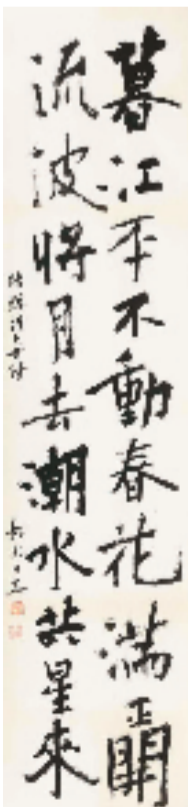 暮江平不動春花滿正開
流波將月去潮水共星來